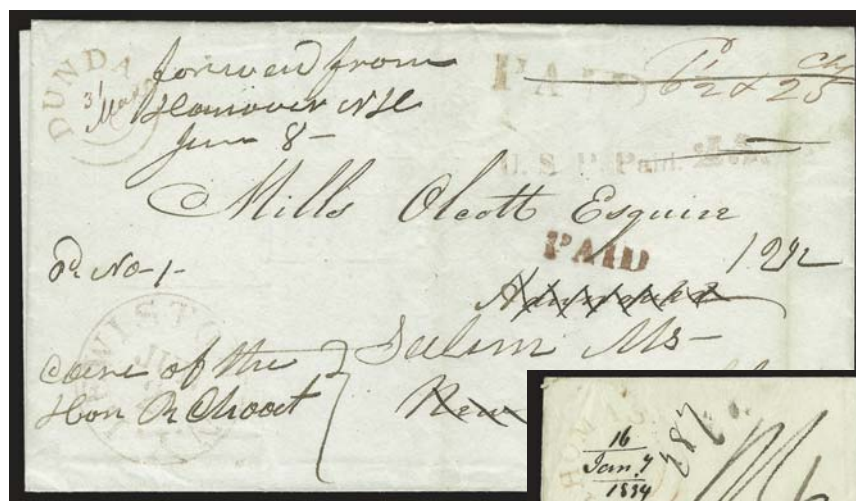 DUNDA
31 May
forward from
Hanover NH
June 8 -
PAID
6½ & 25
U. S. P. Paid. 25
Mills Olcott Esquire
PAID
Pd No-1-
WISTO
JU
Salem Ms-
Care of the
Hon R Choat
New
16
Jan. 7
1834
287